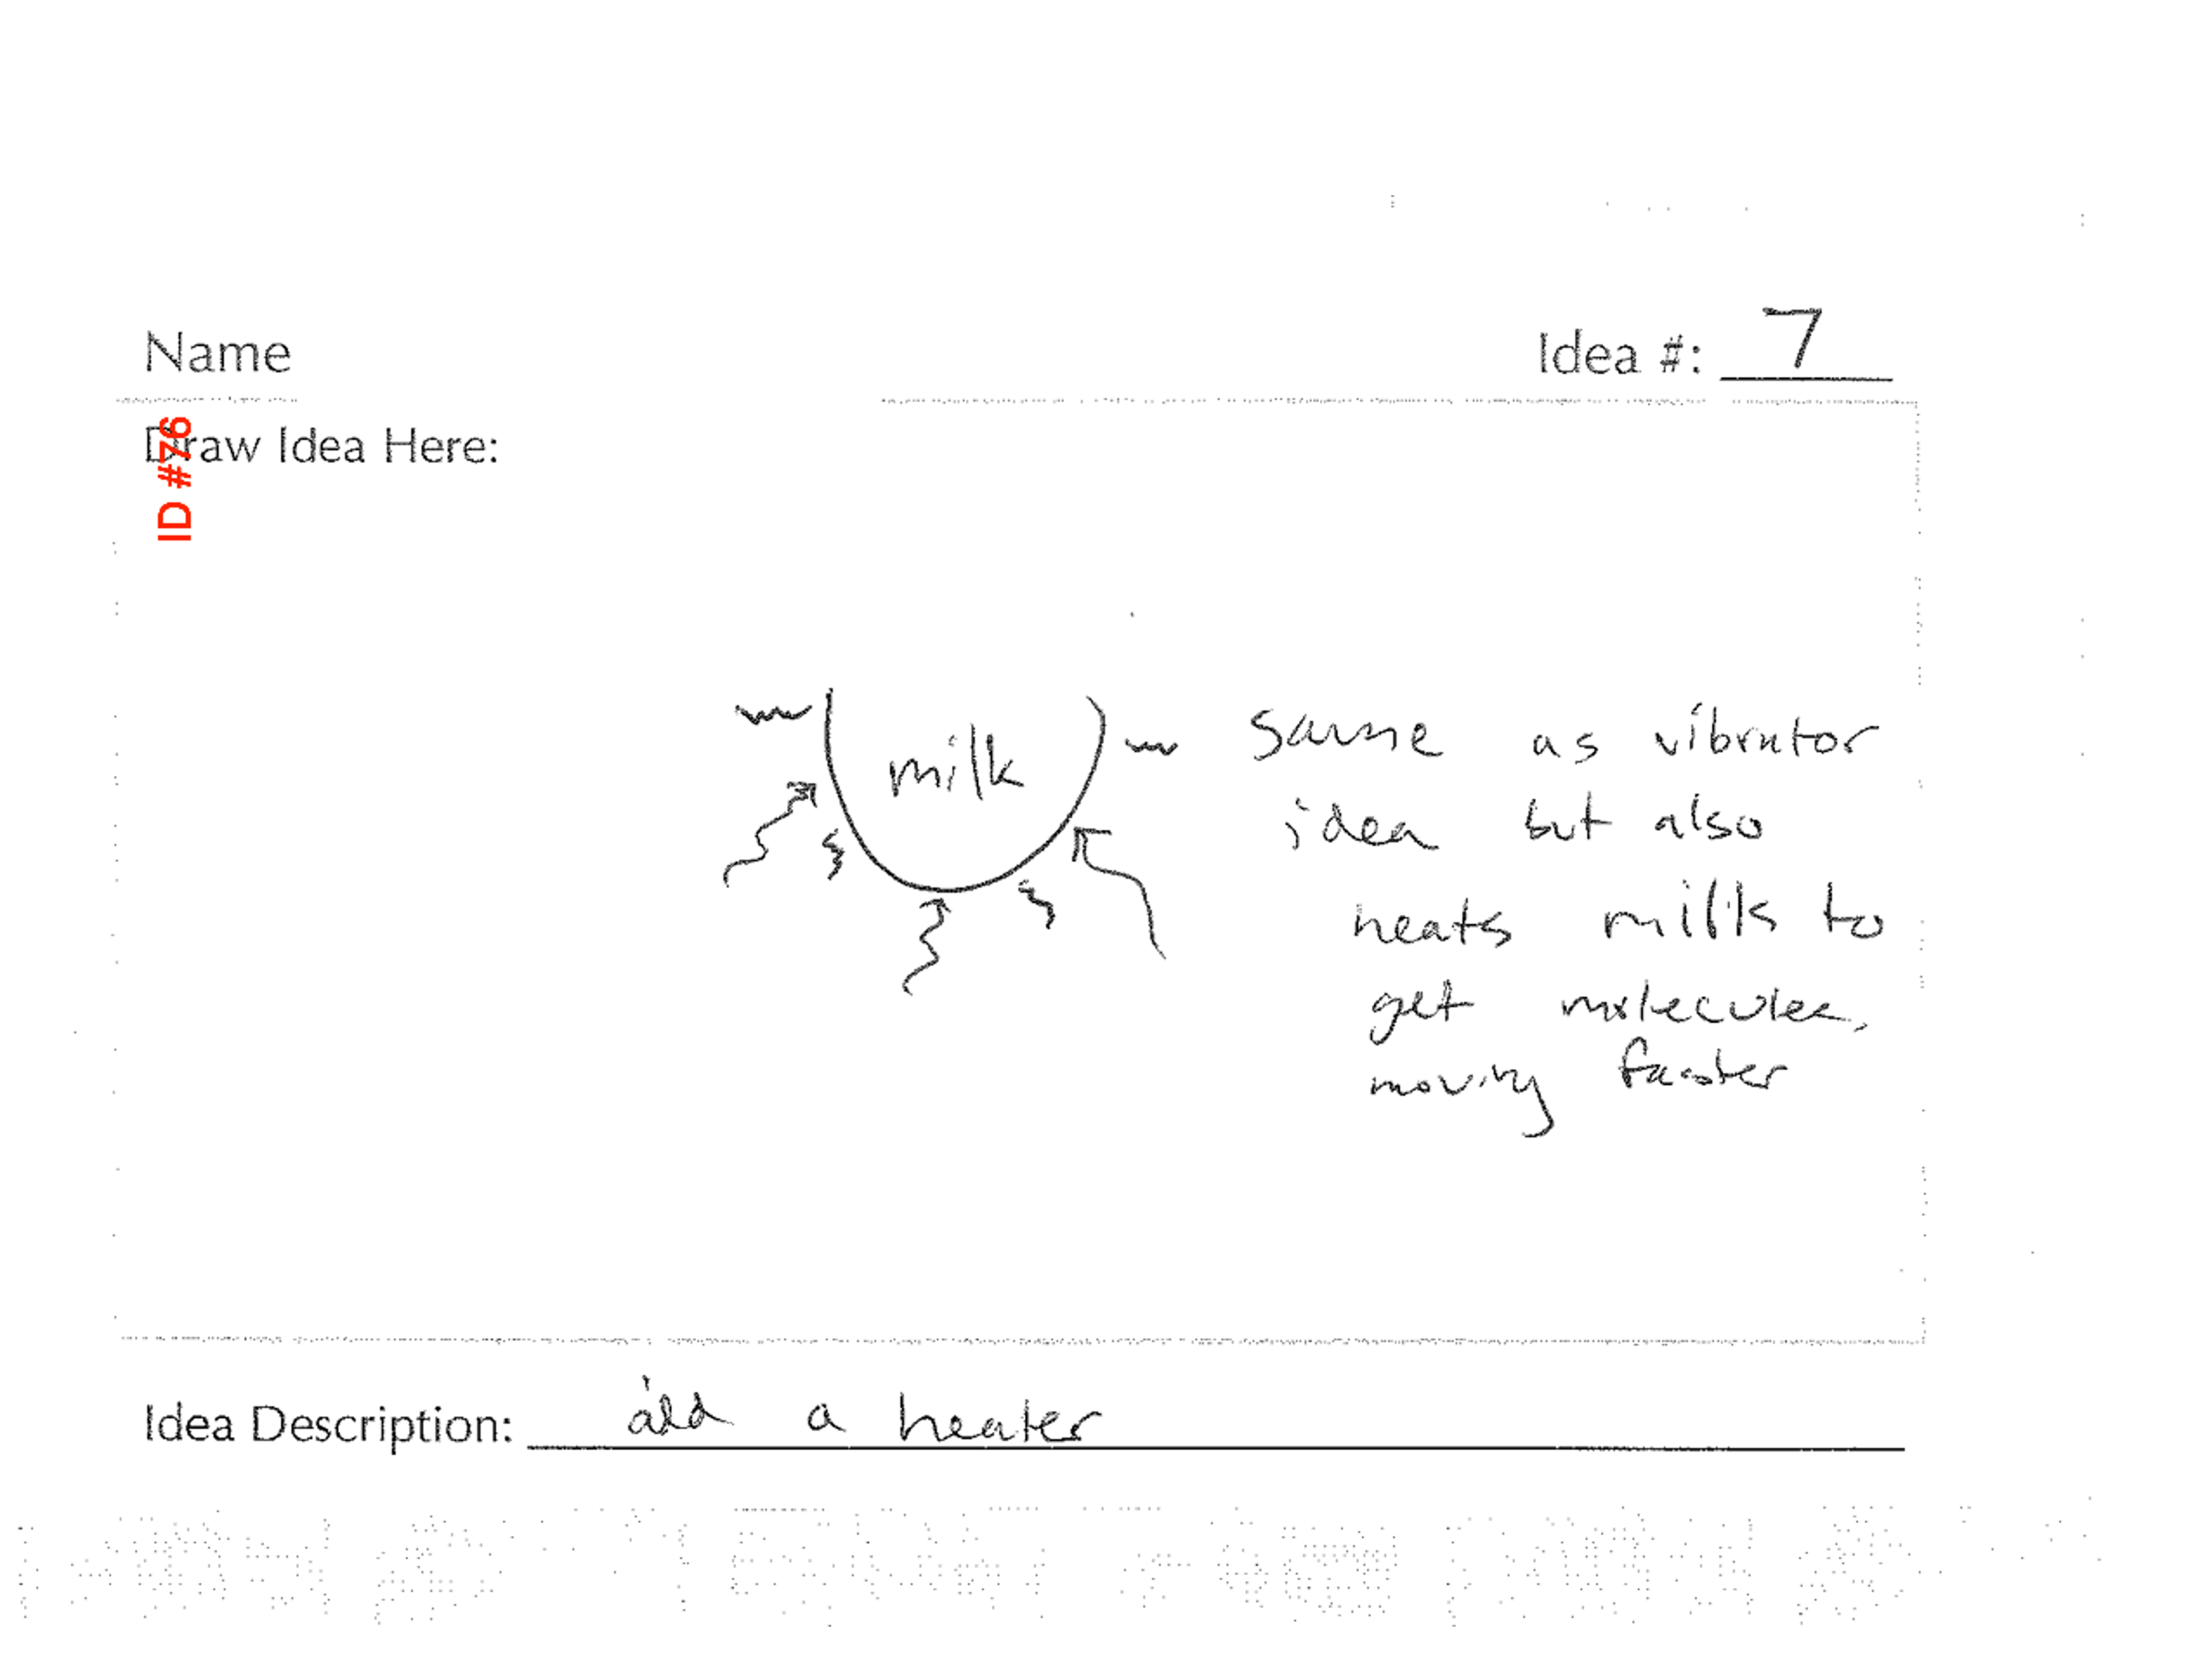 Name
Idea #: 7
ID #76
Draw Idea Here:
milk
same as vibrator
idea but also
heats milk to
get molecules
moving faster
Idea Description: add a heater